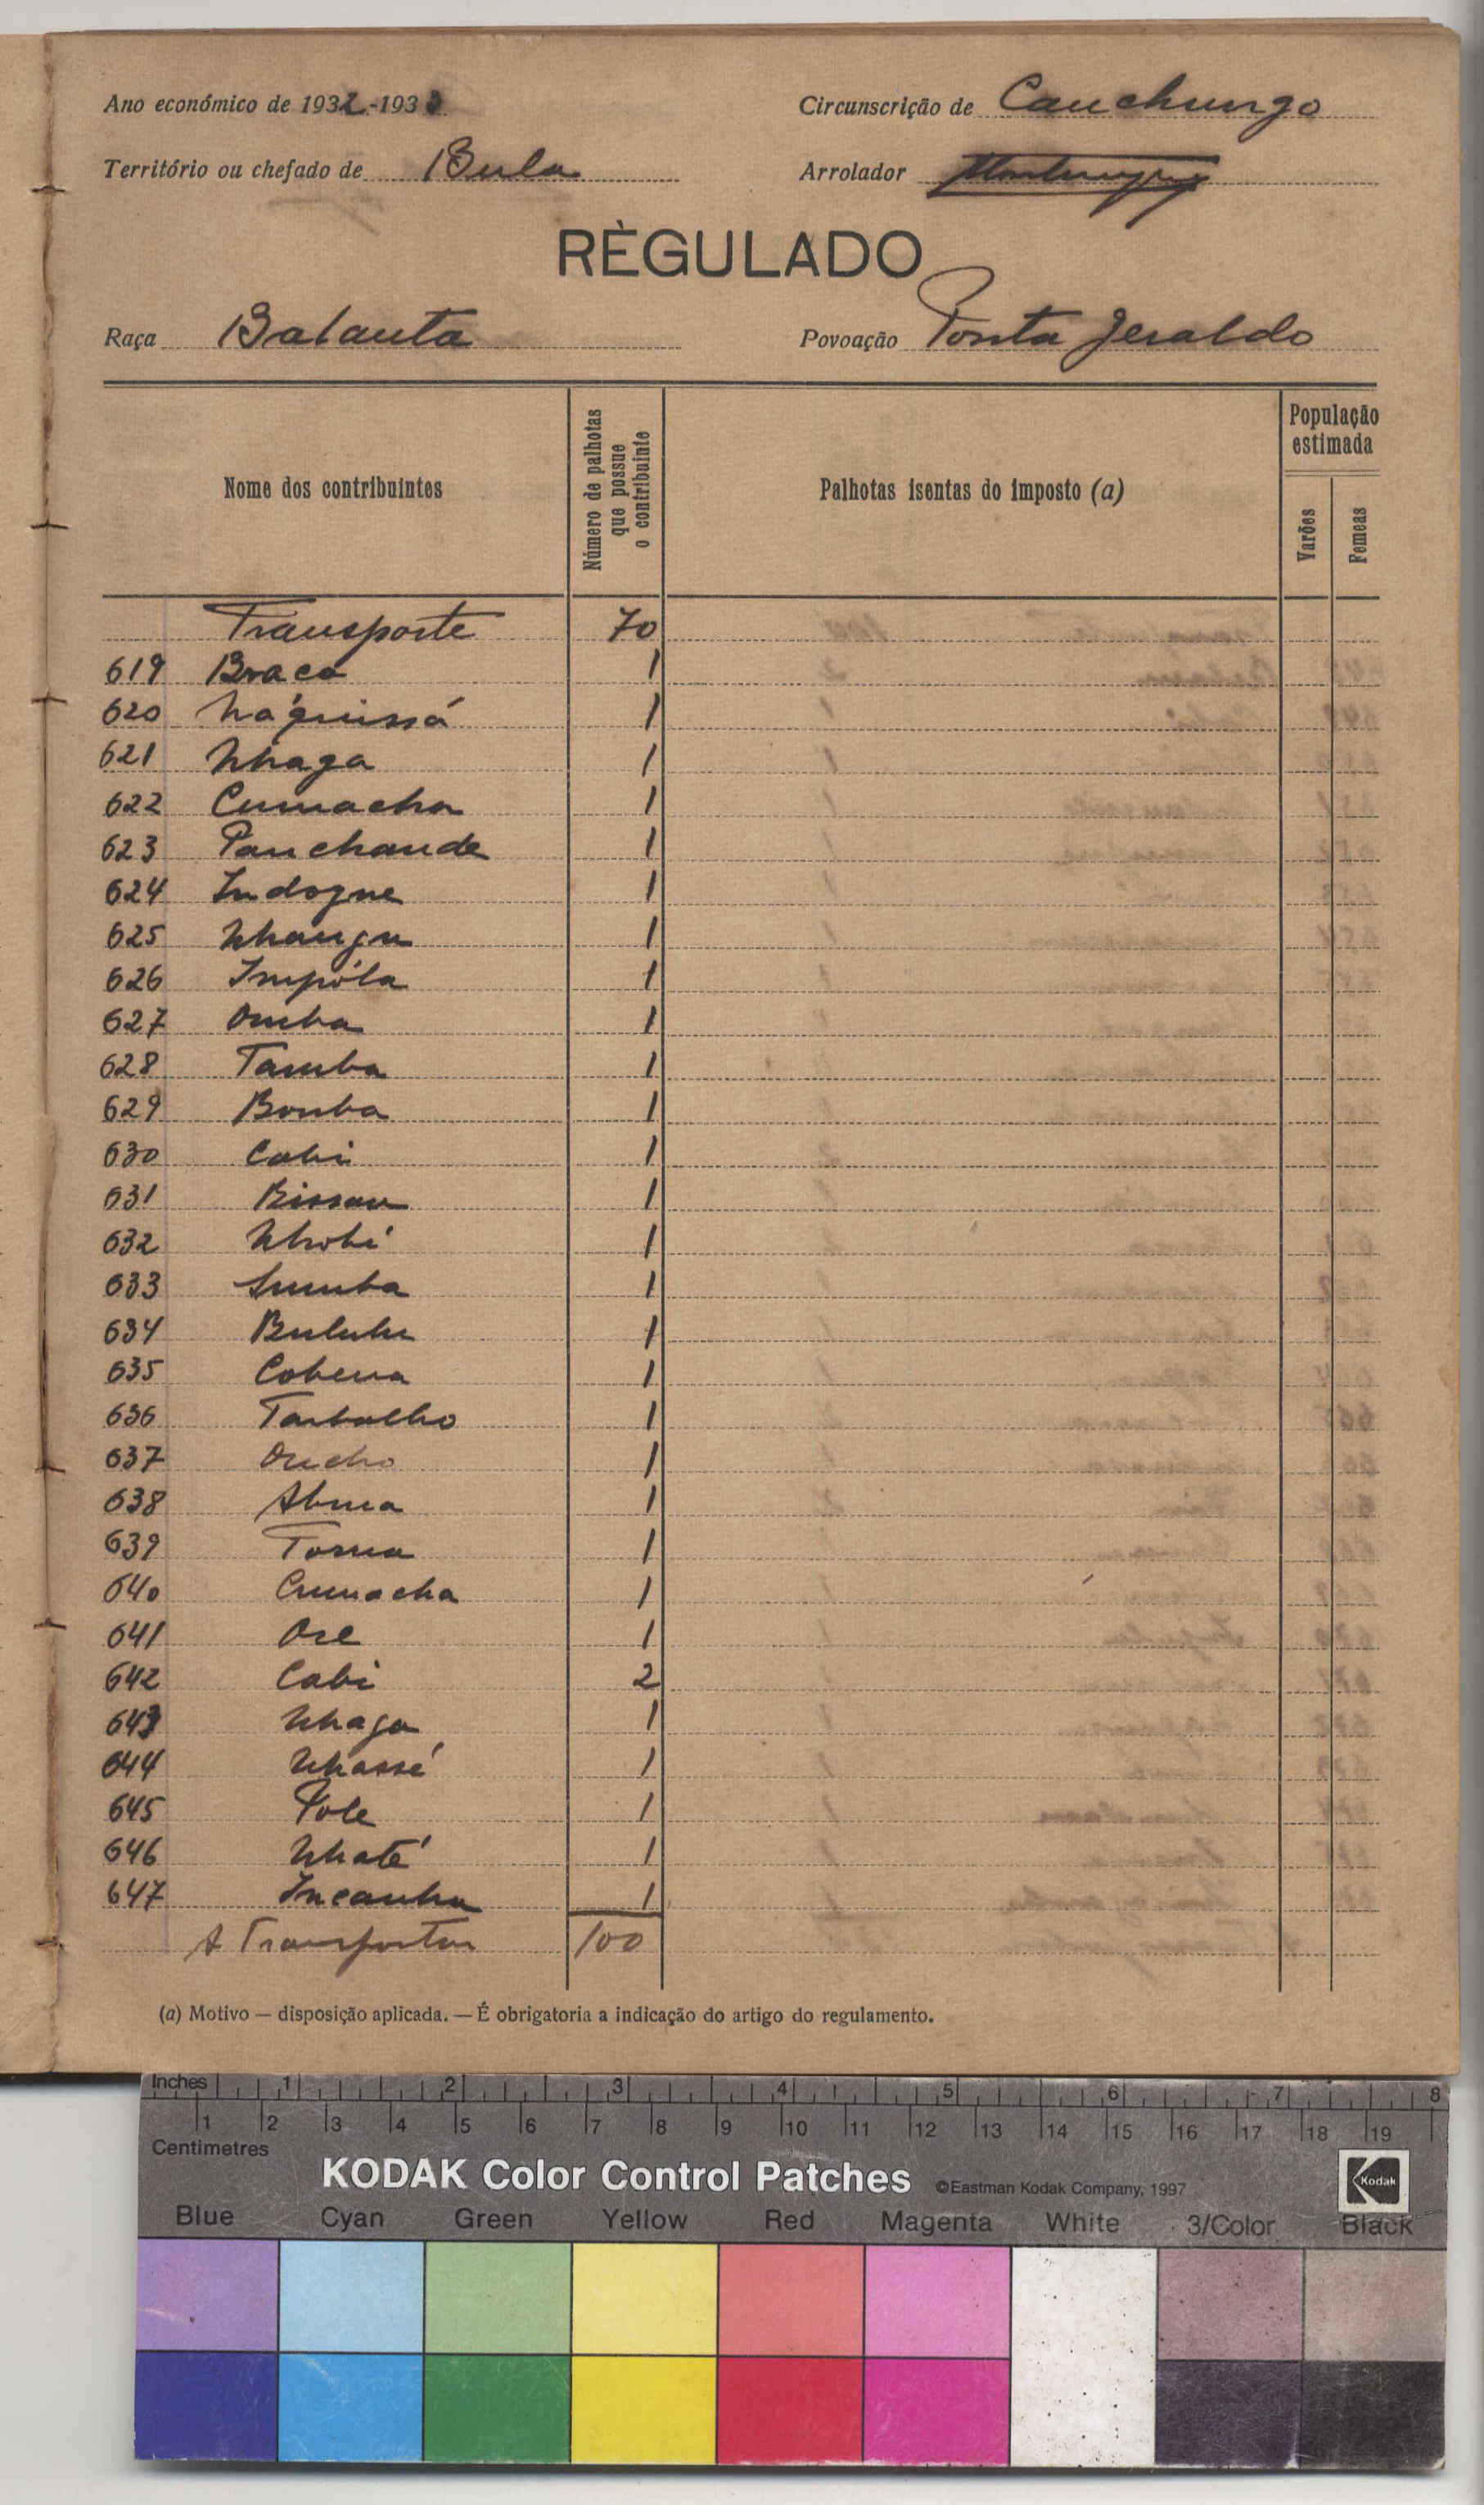 Ano económico de 1932-1933
Circunscrição de Canchungo
Território ou chefado de Bula
Arrolador
RÈGULADO
Raça Balanta
Povoação Ponta Geraldo
Nome dos contribuintes
Número de palhotas que possue o contribuinte
Palhotas isentas do imposto (a)
População estimada
Varões
Femeas
Transporte 70
619 Braca 1
620 Naquissá 1
621 Nhaga 1
622 Cumacha 1
623 Panchande 1
624 Indogne 1
625 Nhangu 1
626 Impóla 1
627 Omba 1
628 Tamba 1
629 Bomba 1
630 Cabi 1
631 Bissau 1
632 Nhobi 1
633 Sumba 1
634 Bululu 1
635 Cobena 1
636 Tarbalho 1
637 Oucho 1
638 Abna 1
639 Torna 1
640 Cumacha 1
641 Ore 1
642 Cabi 2
643 Nhaga 1
644 Nhassé 1
645 Pole 1
646 Nhaté 1
647 Incanha 1
A Transportar 100
(a) Motivo — disposição aplicada. — É obrigatoria a indicação do artigo do regulamento.
Inches 1 2 3 4 5 6 7 8
1 2 3 4 5 6 7 8 9 10 11 12 13 14 15 16 17 18 19
Centimetres
KODAK Color Control Patches ©Eastman Kodak Company, 1997 Kodak
Blue Cyan Green Yellow Red Magenta White 3/Color Black